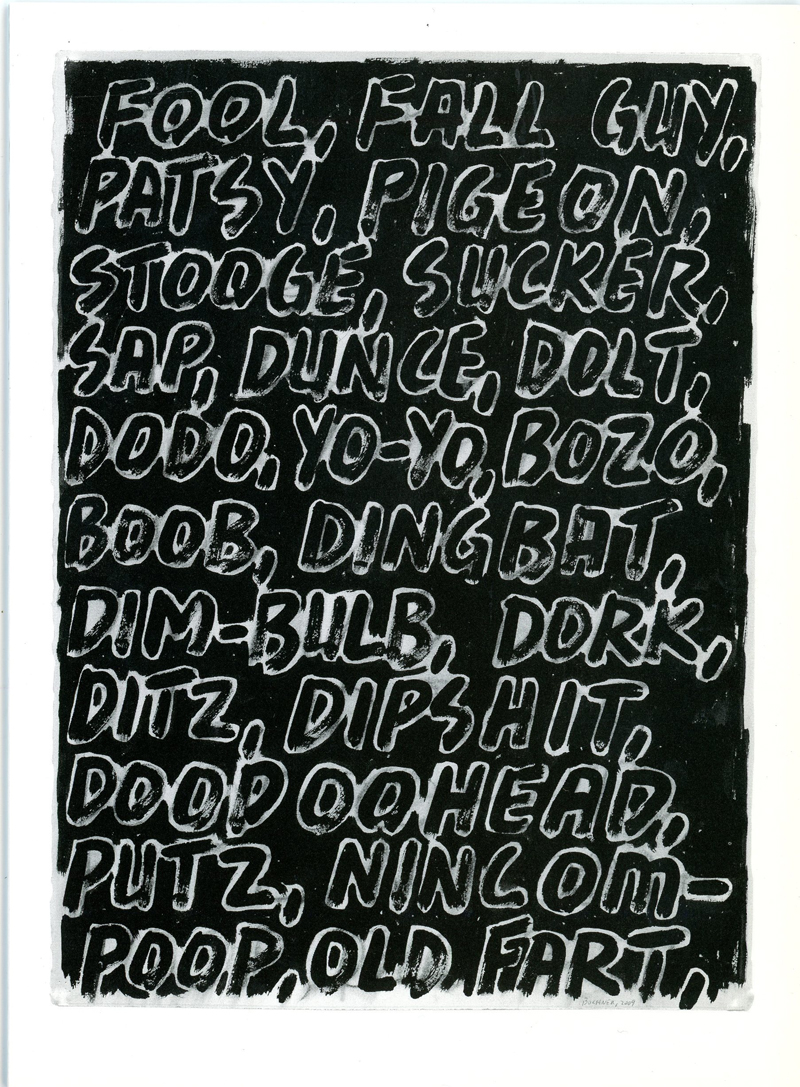 FOOL, FALL GUY,
PATSY, PIGEON,
STOOGE, SUCKER,
SAP, DUNCE, DOLT,
DODO, YO-YO, BOZO,
BOOB, DINGBAT,
DIM-BULB, DORK,
DITZ, DIPSHIT,
DOODOOHEAD,
PUTZ, NINCOM-
POOP, OLD FART,
BOCHNER, 2009